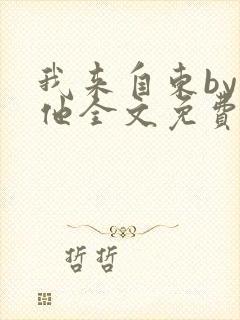 我来自东by
他全文免費
哲哲